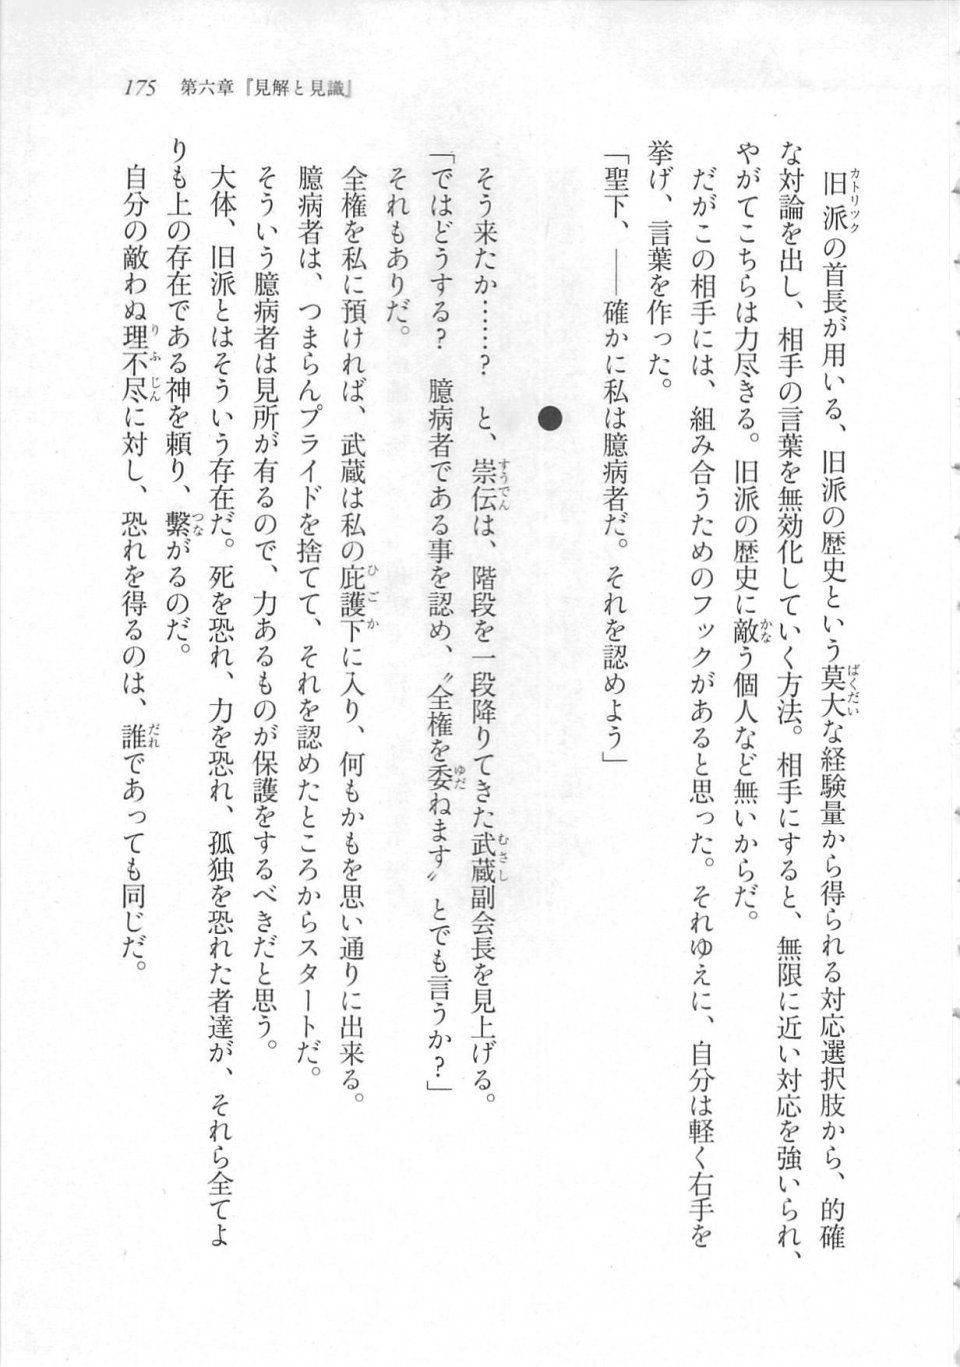 175　第六章『見解と見識』
旧派の首長が用いる、旧派の歴史という莫大な経験量から得られる対応選択肢から、的確
な対論を出し、相手の言葉を無効化していく方法。相手にすると、無限に近い対応を強いられ、
やがてこちらは力尽きる。旧派の歴史に敵う個人など無いからだ。
だがこの相手には、組み合うためのフックがあると思った。それゆえに、自分は軽く右手を
挙げ、言葉を作った。
「聖下、――確かに私は臆病者だ。それを認めよう」
●
そう来たか……？　と、崇伝は、階段を一段降りてきた武蔵副会長を見上げる。
「ではどうする？　臆病者である事を認め、〝全権を委ねます〟とでも言うか？」
それもありだ。
全権を私に預ければ、武蔵は私の庇護下に入り、何もかもを思い通りに出来る。
臆病者は、つまらんプライドを捨てて、それを認めたところからスタートだ。
そういう臆病者は見所が有るので、力あるものが保護をするべきだと思う。
大体、旧派とはそういう存在だ。死を恐れ、力を恐れ、孤独を恐れた者達が、それら全てよ
りも上の存在である神を頼り、繫がるのだ。
自分の敵わぬ理不尽に対し、恐れを得るのは、誰であっても同じだ。